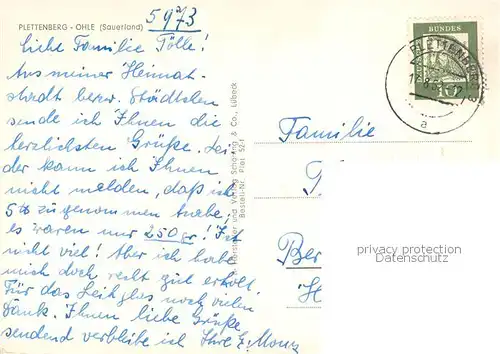 PLETTENBERG - OHLE (Sauerland)
5973
Liebe Familie Tölle!
Aus meiner Heimat-
stadt bezw. Städtchen
sende ich Ihnen die
herzlichsten Grüße. Lei-
der kann ich Ihnen
nicht melden, daß ich
5 ℔ zugenommen habe,
es waren nur 250 gr! Ist
nicht viel! Aber ich habe
mich doch recht gut erholt.
Für das Leihglas noch vielen
Dank. Ihnen liebe Grüße
sendend verbleibe ich Ihre
Hersteller und Verlag Schöning & Co., Lübeck
Bestell-Nr. Plat
DEUTSCHE BUNDESPOST
PLETTENBERG
a
Familie
T
Ber
H
privacy protection
Datenschutz